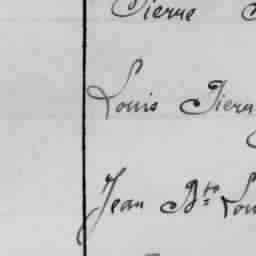 Pierre
Louis Pierr
Jean Bte Lou